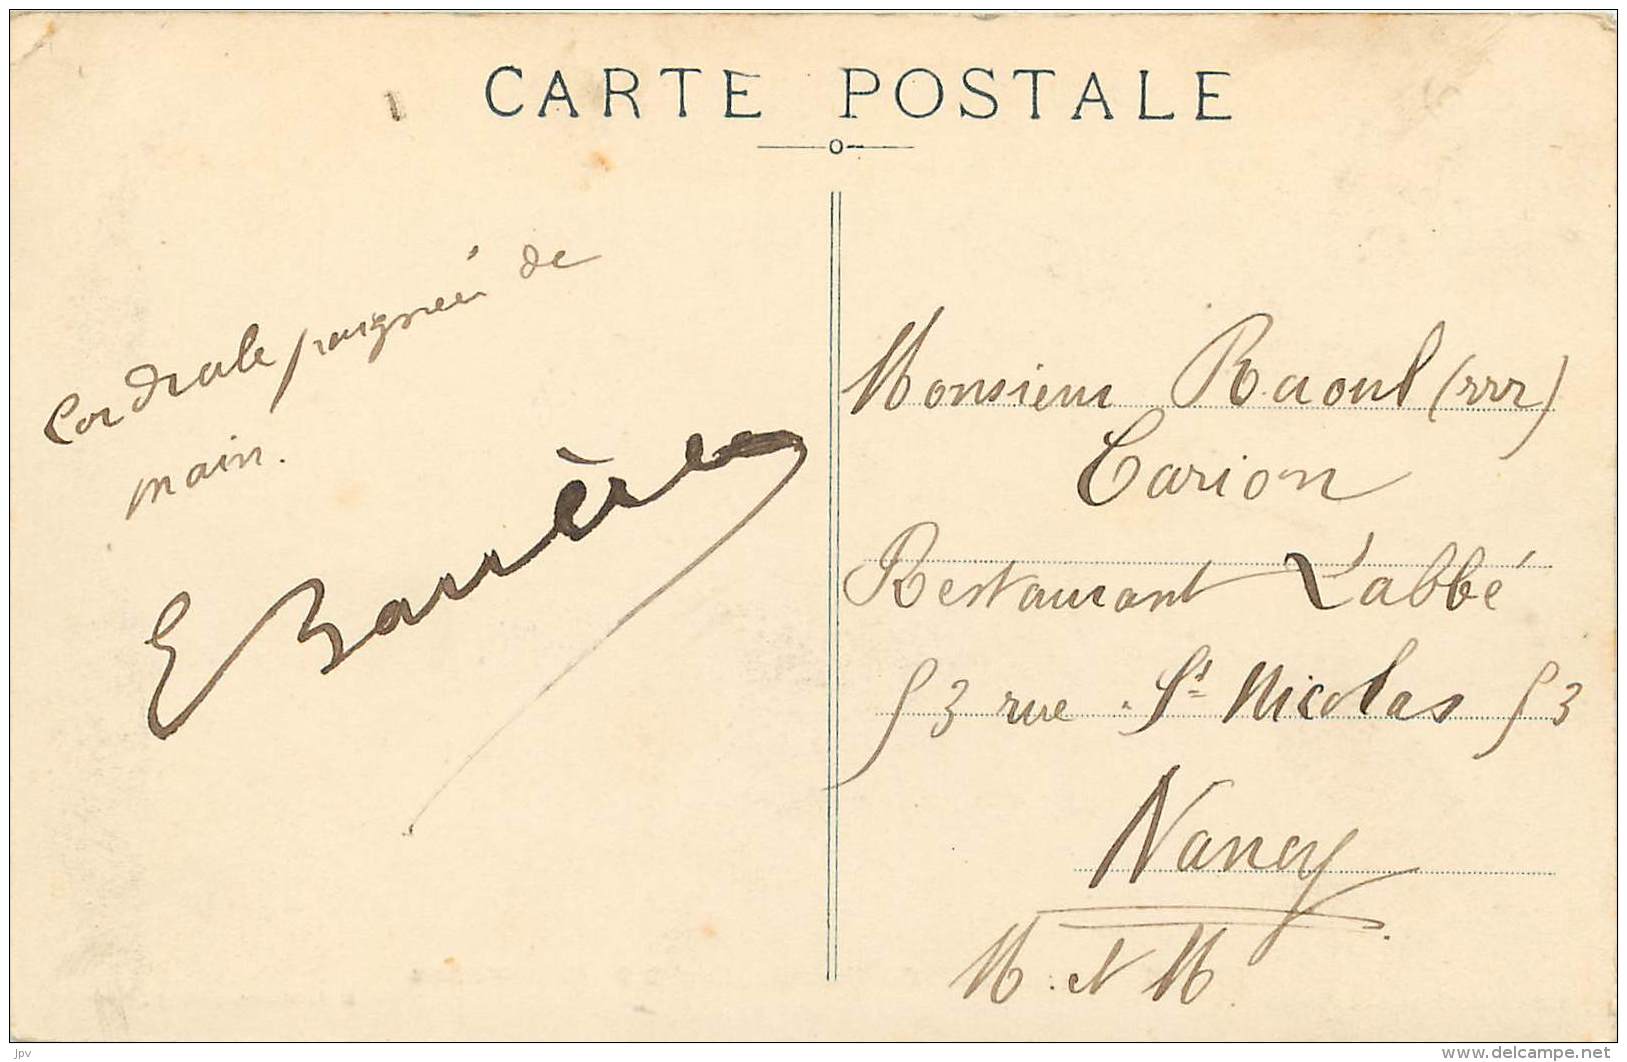 CARTE POSTALE
Cordiale poignée de
main.
E Barrère
Monsieur Raoul (rrr)
Carion
Restaurant Labbé
53 rue St Nicolas 53
Nancy
M. et M
jpv
www.delcampe.net